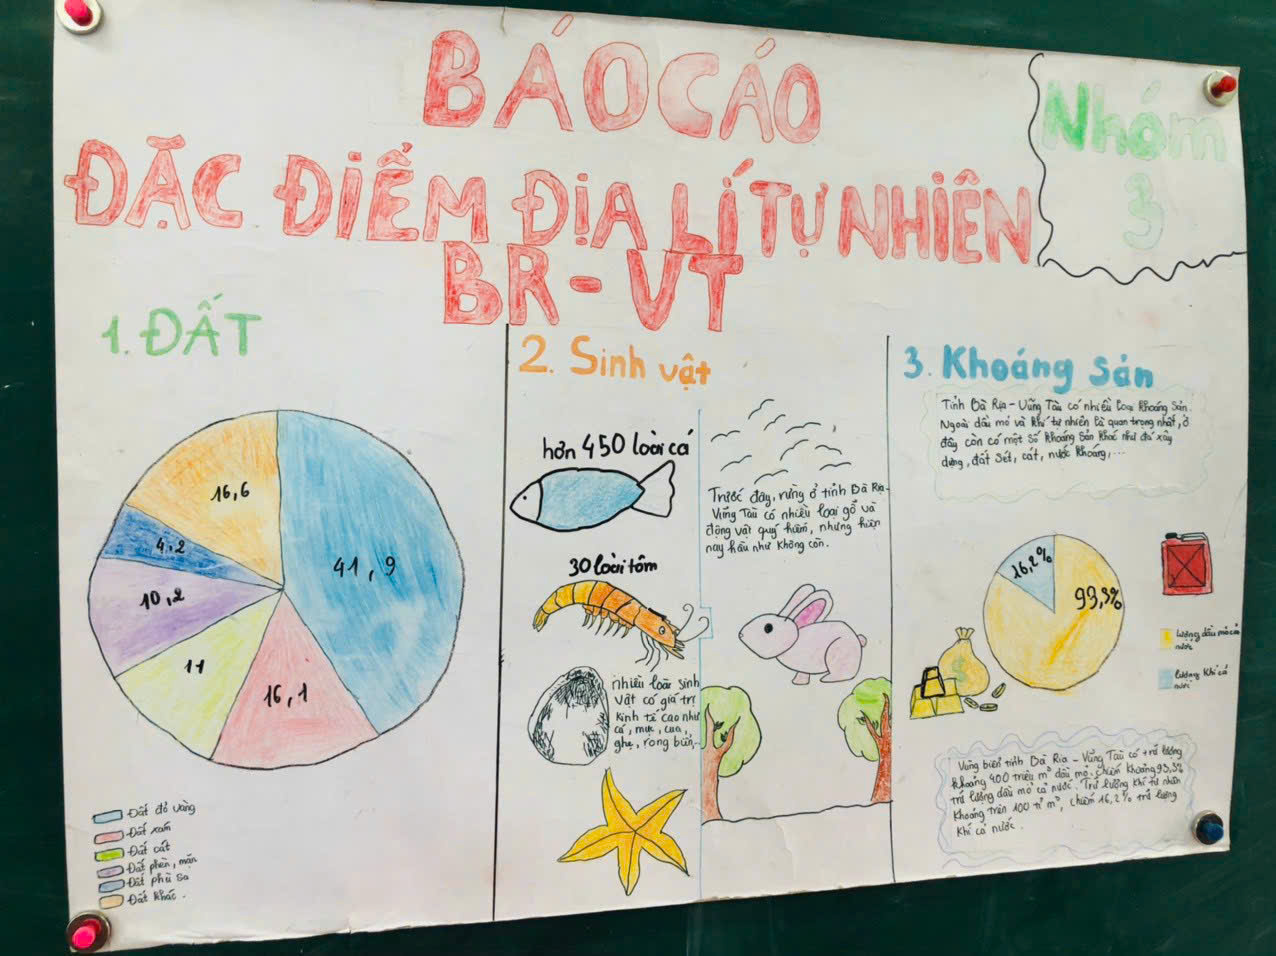 BÁO CÁO
ĐẶC ĐIỂM ĐỊA LÍ TỰ NHIÊN
BR - VT
Nhóm
3
1. ĐẤT
16,6
41,9
4,2
10,2
11
16,1
Đất đỏ vàng
Đất xám
Đất cát
Đất phèn, mặn
Đất phù sa
Đất khác.
2. Sinh vật
hơn 450 loài cá
30 loài tôm
nhiều loài sinh
vật có giá trị
kinh tế cao như
cá, mực, cua,
ghẹ, rong biển,...
Trước đây, rừng ở tỉnh Bà Rịa-
Vũng Tàu có nhiều loại gỗ và
động vật quý hiếm, nhưng hiện
nay hầu như không còn.
3. Khoáng sản
Tỉnh Bà Rịa - Vũng Tàu có nhiều loại khoáng sản.
Ngoài dầu mỏ và khí tự nhiên là quan trọng nhất, ở
đây còn có một số khoáng sản khác như đá xây
dựng, đất sét, cát, nước khoáng,...
16,2%
93,3%
lượng dầu mỏ cả
nước
lượng khí cả
nước
Vùng biển tỉnh Bà Rịa - Vũng Tàu có trữ lượng
khoảng 400 triệu m³ dầu mỏ, chiếm khoảng 93,3%
trữ lượng dầu mỏ cả nước. Trữ lượng khí tự nhiên
khoảng trên 100 tỉ m³, chiếm 16,2% trữ lượng
khí cả nước.